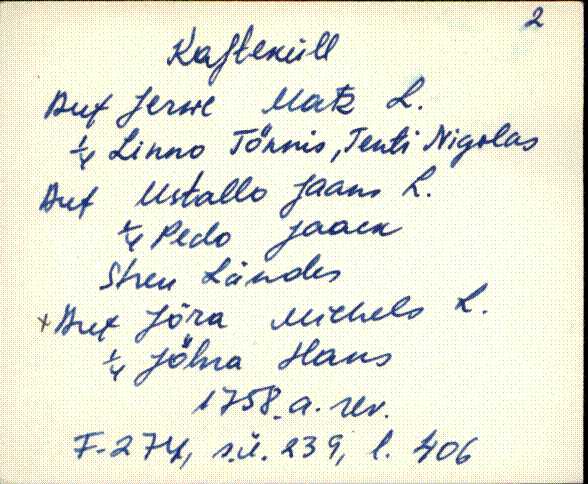 2
Kasteküll
Auf Jerwe Matz L.
¼ Linno Tönnis, Tenti Nigolas
Auf Ustallo Jaans L.
¼ Pedo Jaack
Streu Ländes
+ Auf Jöra Michels L.
¼ Jöhra Hans
1758. a. rev.
F-274, s.ü. 239, l. 406